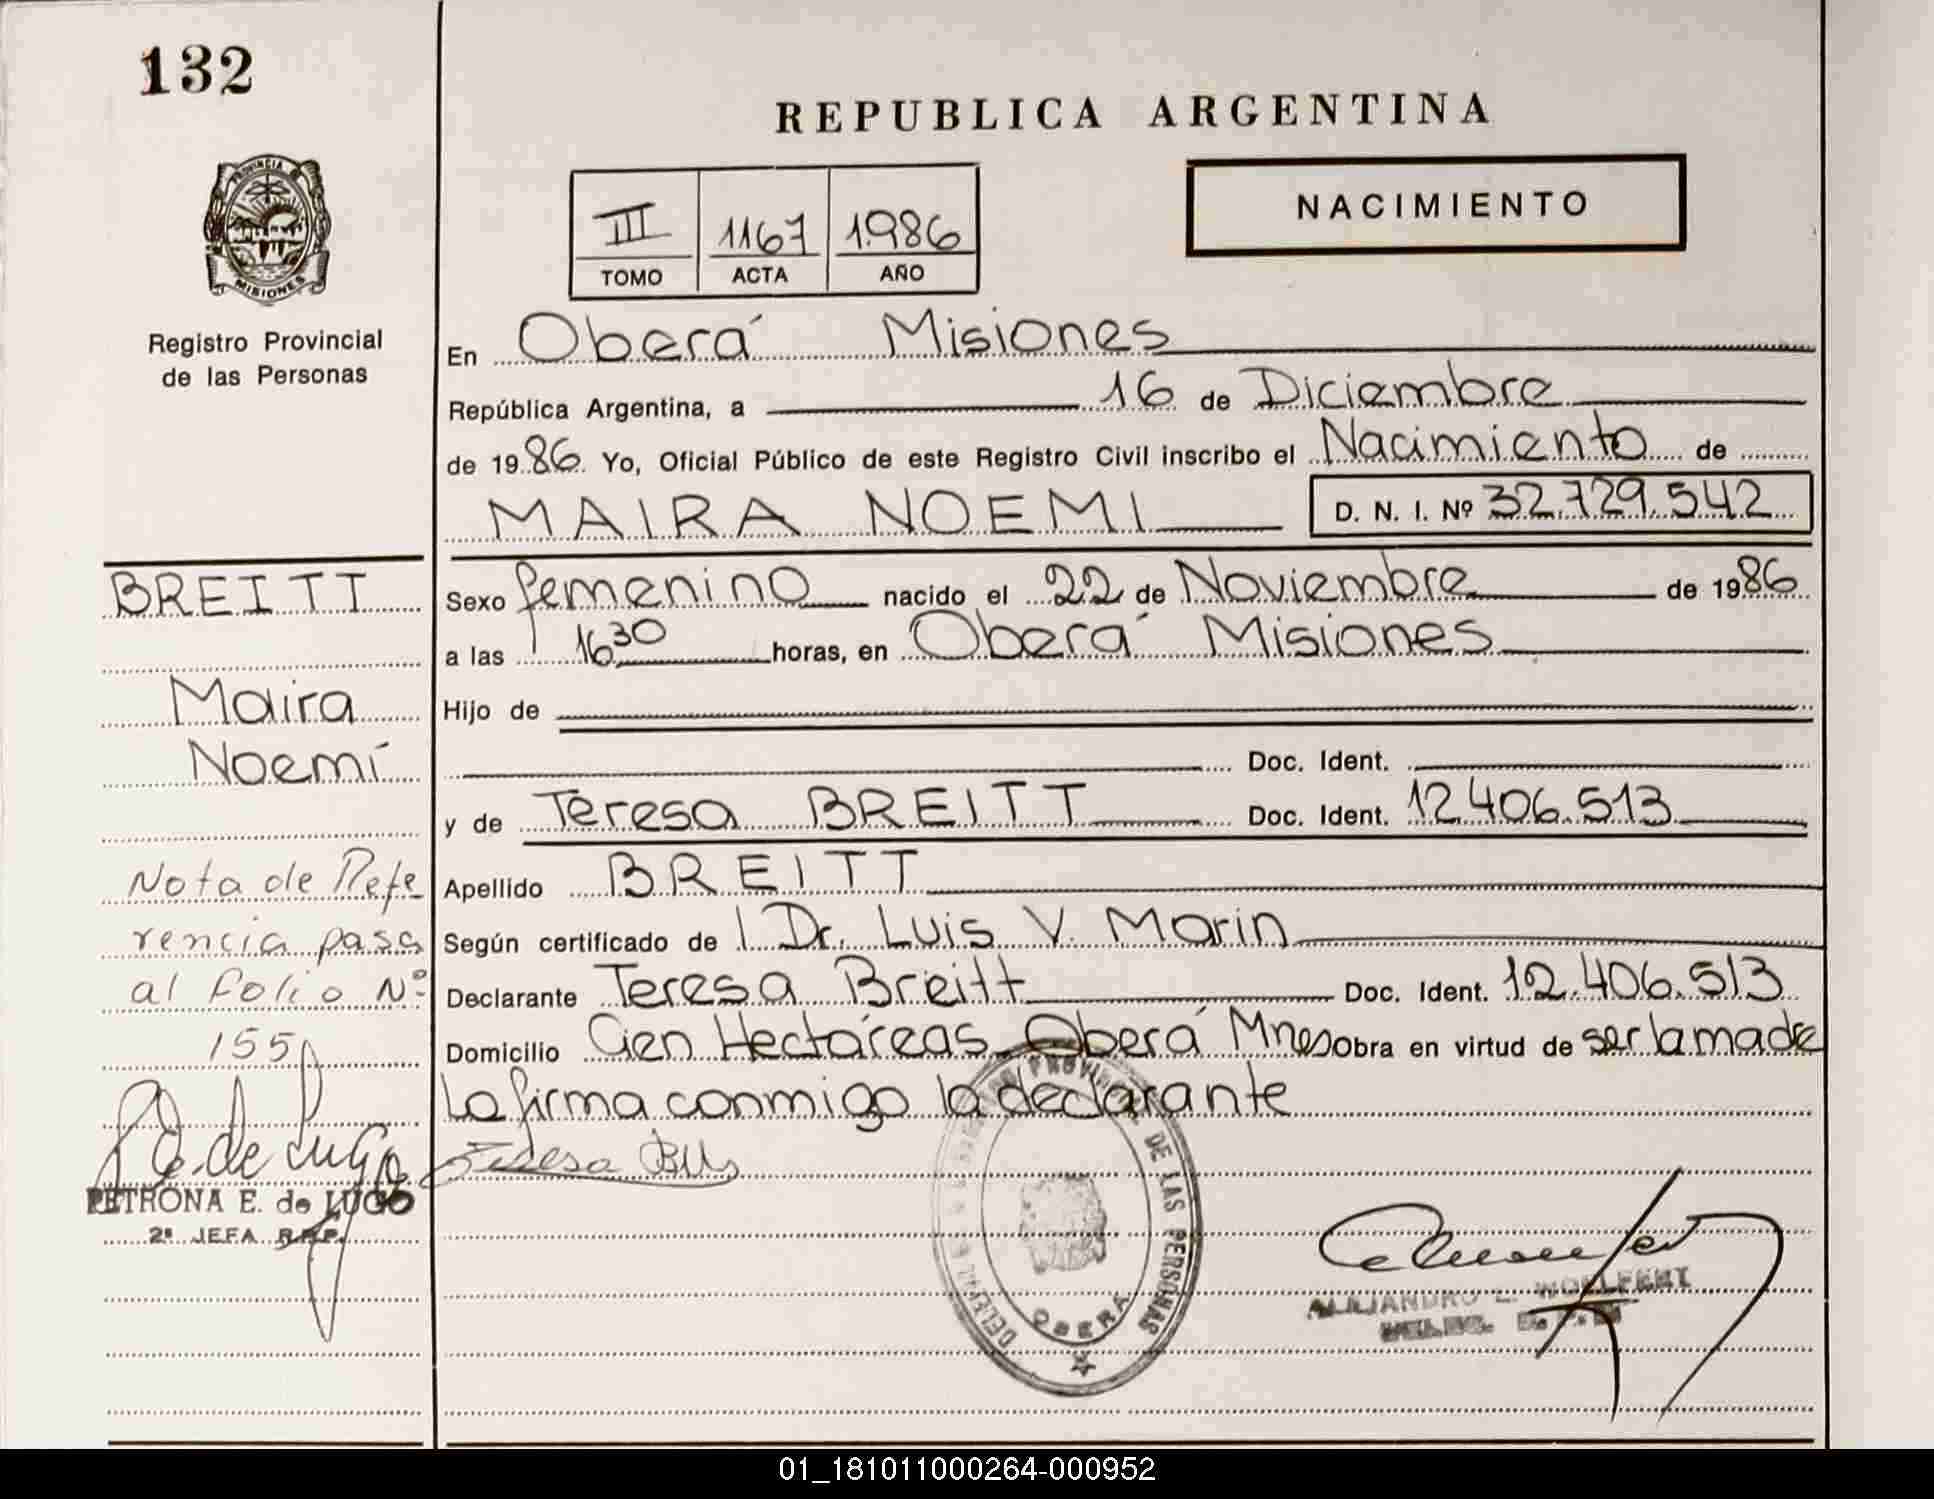 132
REPUBLICA ARGENTINA
PROVINCIA D
MISIONES
III 1167 1.986
TOMO ACTA AÑO
NACIMIENTO
Registro Provincial
de las Personas
En Oberá Misiones
República Argentina, a 16 de Diciembre
de 1986 Yo, Oficial Público de este Registro Civil inscribo el Nacimiento de
MAIRA NOEMI D. N. I. Nº 32.729.542
BREITT
Maira
Noemí
Nota de Refe
rencia pasa
al folio Nº
155
P. E. de Lugo
PETRONA E. de LUGO
2ª JEFA R.P.P.
Sexo femenino nacido el 22 de Noviembre de 1986
a las 16 30 horas, en Oberá Misiones
Hijo de
Doc. Ident.
y de Teresa BREITT Doc. Ident. 12.406.513
Apellido BREITT
Según certificado de Dr. Luis V. Marin
Declarante Teresa Breitt Doc. Ident. 12.406.513
Domicilio Cien Hectáreas Oberá Mnes Obra en virtud de ser la madre
La firma conmigo la declarante
Teresa
PROVINC. DE LAS PERSONAS
OBERA
ALEJANDRO L. WOELFERT
01_181011000264-000952